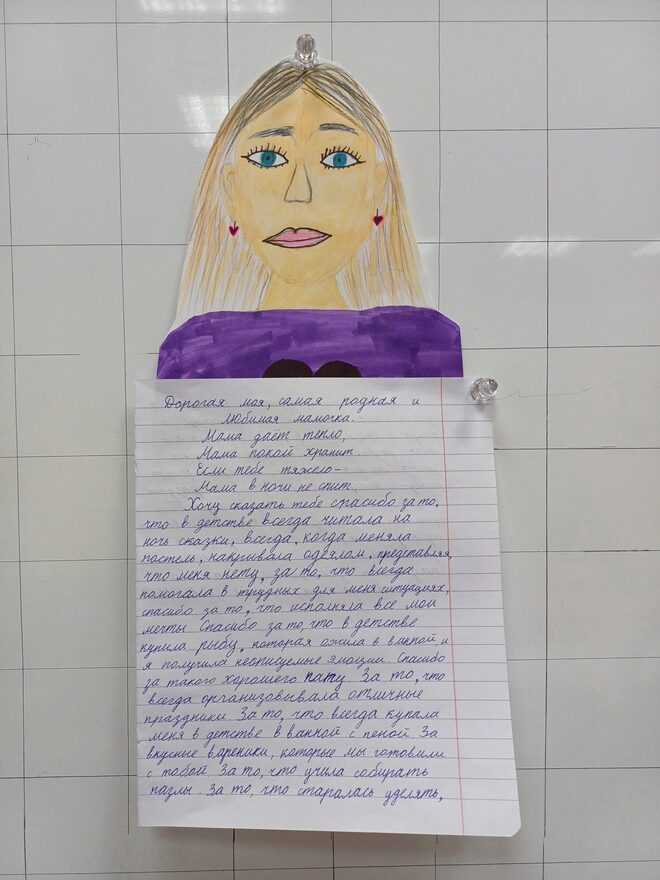 Дорогая моя, самая родная и
любимая мамочка.
Мама даёт тепло,
Мама покой хранит
Если тебе тяжело-
Мама в ночи не спит
Хочу сказать тебе спасибо за то,
что в детстве всегда читала на
ночь сказки, всегда, когда меняла
постель, накрывала одеялом, представляя,
что меня нету, за то, что всегда
помогала в трудных для меня ситуациях,
спасибо за то, что исполняла все мои
мечты. Спасибо за то, что в детстве
купила рыбу, которая ожила в ванной и
я получила неописуемые эмоции. Спасибо
за такого хорошего папу. За то, что
всегда организовывала отличные
праздники. За то, что всегда купала
меня в детстве в ванной с пеной. За
вкусные вареники, которые мы готовили
с тобой. За то, что учила собирать
пазлы. За то, что старалась уделять,